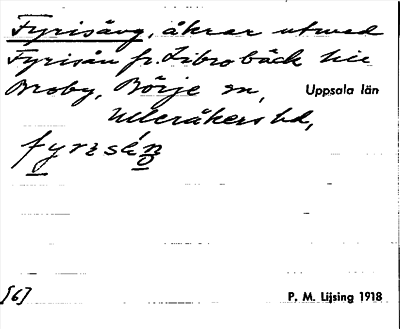 Fyrisäng, åkrar utmed
Fyrisån fr. Librobäck till
Broby, Börje sn,
Uppsala län
Ulleråkers hd,
[6]
P. M. Lijsing 1918